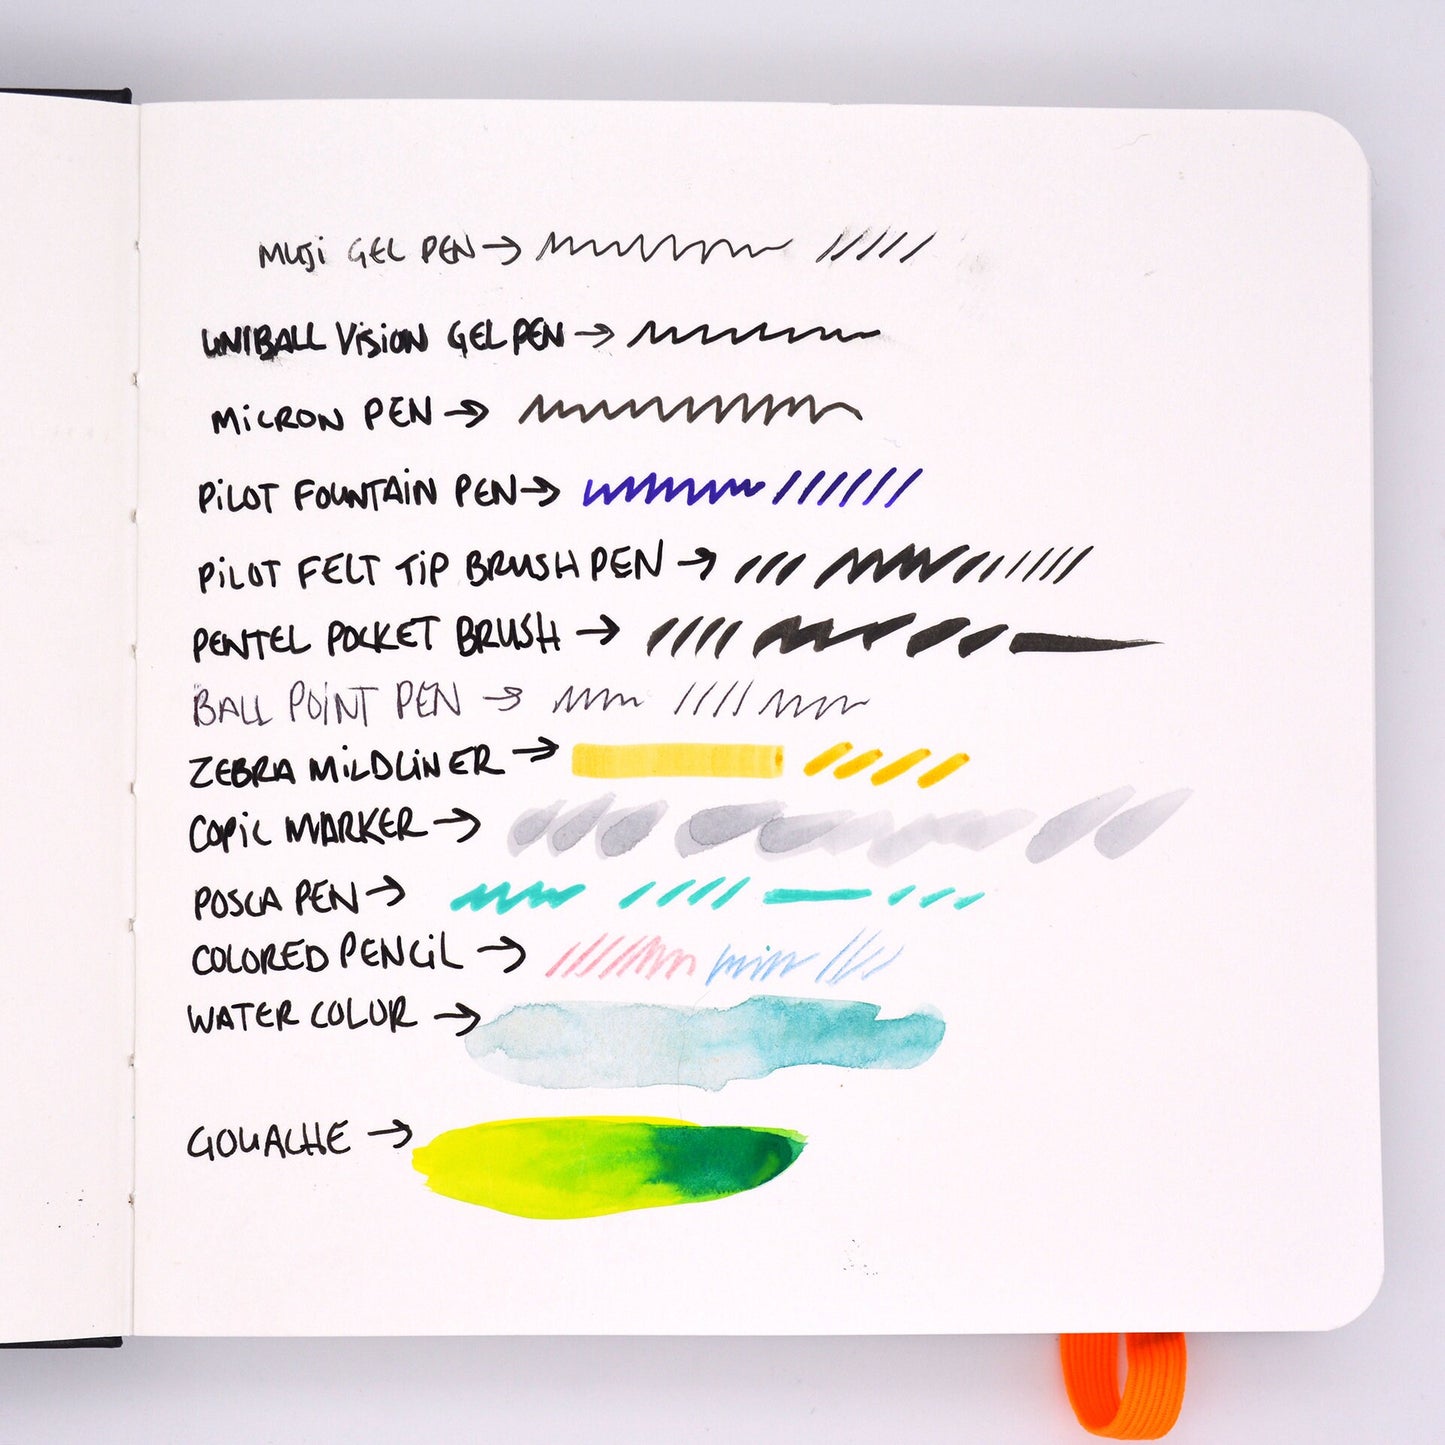 MUJI GEL PEN →
UNIBALL VISION GEL PEN →
MICRON PEN →
PILOT FOUNTAIN PEN →
PILOT FELT TIP BRUSH PEN →
PENTEL POCKET BRUSH →
BALL POINT PEN →
ZEBRA MILDLINER →
COPIC MARKER →
POSCA PEN →
COLORED PENCIL →
WATER COLOR →
GOUACHE →